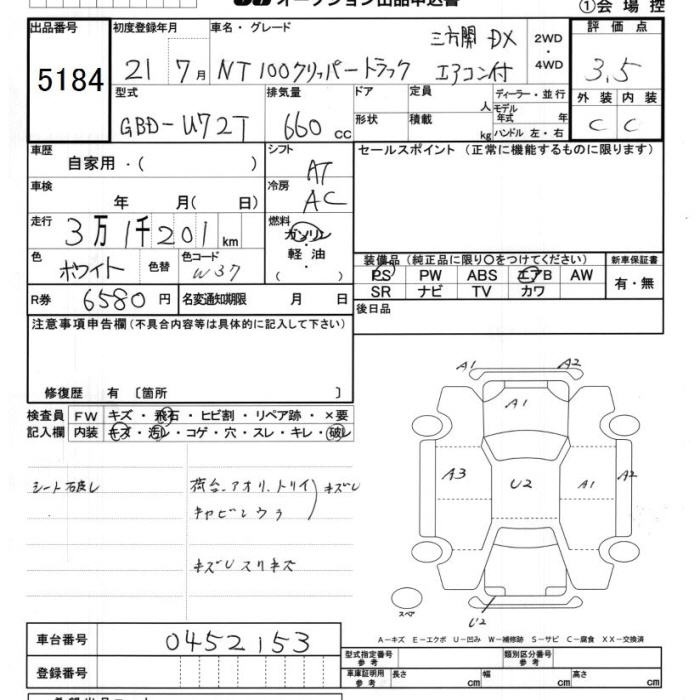 オークション出品申込書
①会場控
出品番号 初度登録年月 車名・グレード 評価点
5184 21 7月 NT100クリッパートラック 三方開 DX エアコン付 2WD・4WD 3.5
型式 排気量 ドア 定員 人 ディーラー・並行 外装 内装
GBD-U72T 660 cc 形状 積載 kg モデル年式 年 ハンドル 左・右 C C
車歴 シフト セールスポイント (正常に機能するものに限ります)
自家用・( ) AT
車検 年 月( 日) 冷房 AC
走行 3万1千201km 燃料 ガソリン・軽油・( )
色 ホワイト 色替 色コード W37
装備品(純正品に限り○をつけてください) 新車保証書
PS PW ABS エアB AW 有・無
SR ナビ TV カワ
R券 6580円 名変通知期限 月 日
後日品
注意事項申告欄(不具合内容等は具体的に記入して下さい)
修復歴 有 〔箇所 〕
検査員 FW キズ・飛石・ヒビ割・リペア跡・×要
記入欄 内装 キズ・汚レ・コゲ・穴・スレ・キレ・破レ
A1 A2
A1
A3 U2 A1 A2
荷台、アオリ、トリイ キズU
キズU スリキズ
スペア
U2
A−キズ E−エクボ U−凹み W−補修跡 S−サビ C−腐食 XX−交換済
車台番号 0452153
型式指定番号 参考 類別区分番号 参考
登録番号
車庫証明用 参考 長さ cm 幅 cm 高さ cm